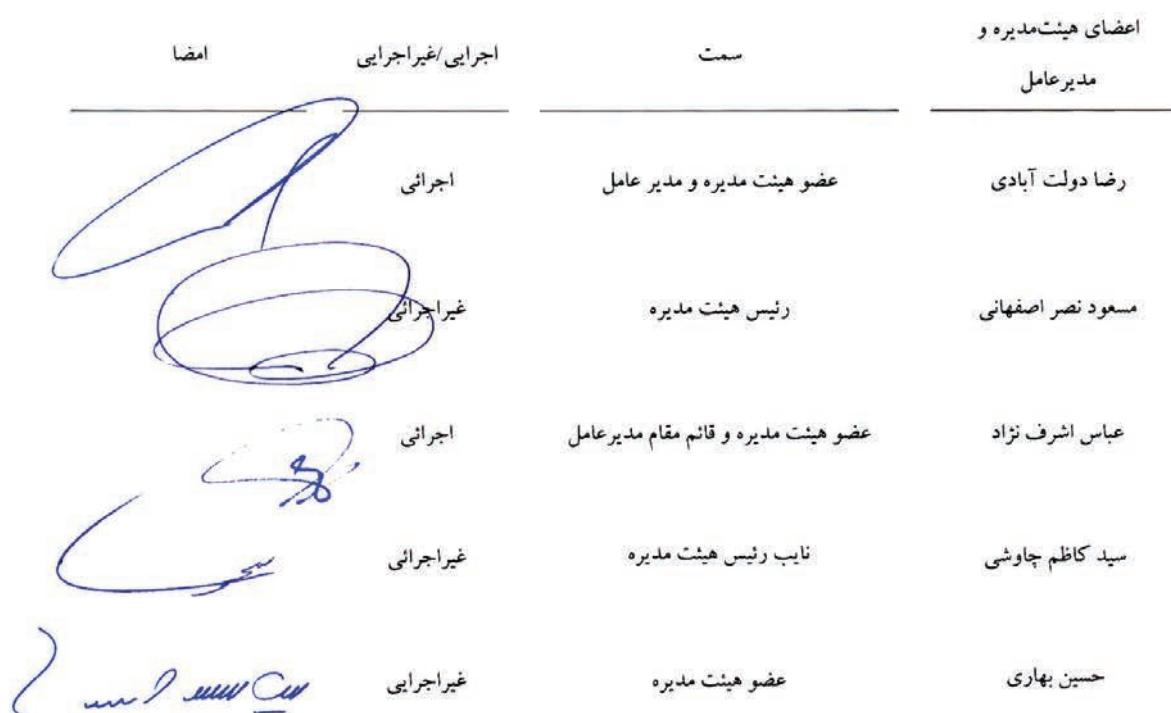 اعضای هیئت‌مدیره و
مدیرعامل
سمت
اجرایی/غیراجرایی
امضا
رضا دولت آبادی
عضو هیئت مدیره و مدیر عامل
اجرائی
مسعود نصر اصفهانی
رئیس هیئت مدیره
غیراجرائی
عباس اشرف نژاد
عضو هیئت مدیره و قائم مقام مدیرعامل
اجرائی
سید کاظم چاوشی
نایب رئیس هیئت مدیره
غیراجرائی
حسین بهاری
عضو هیئت مدیره
غیراجرایی